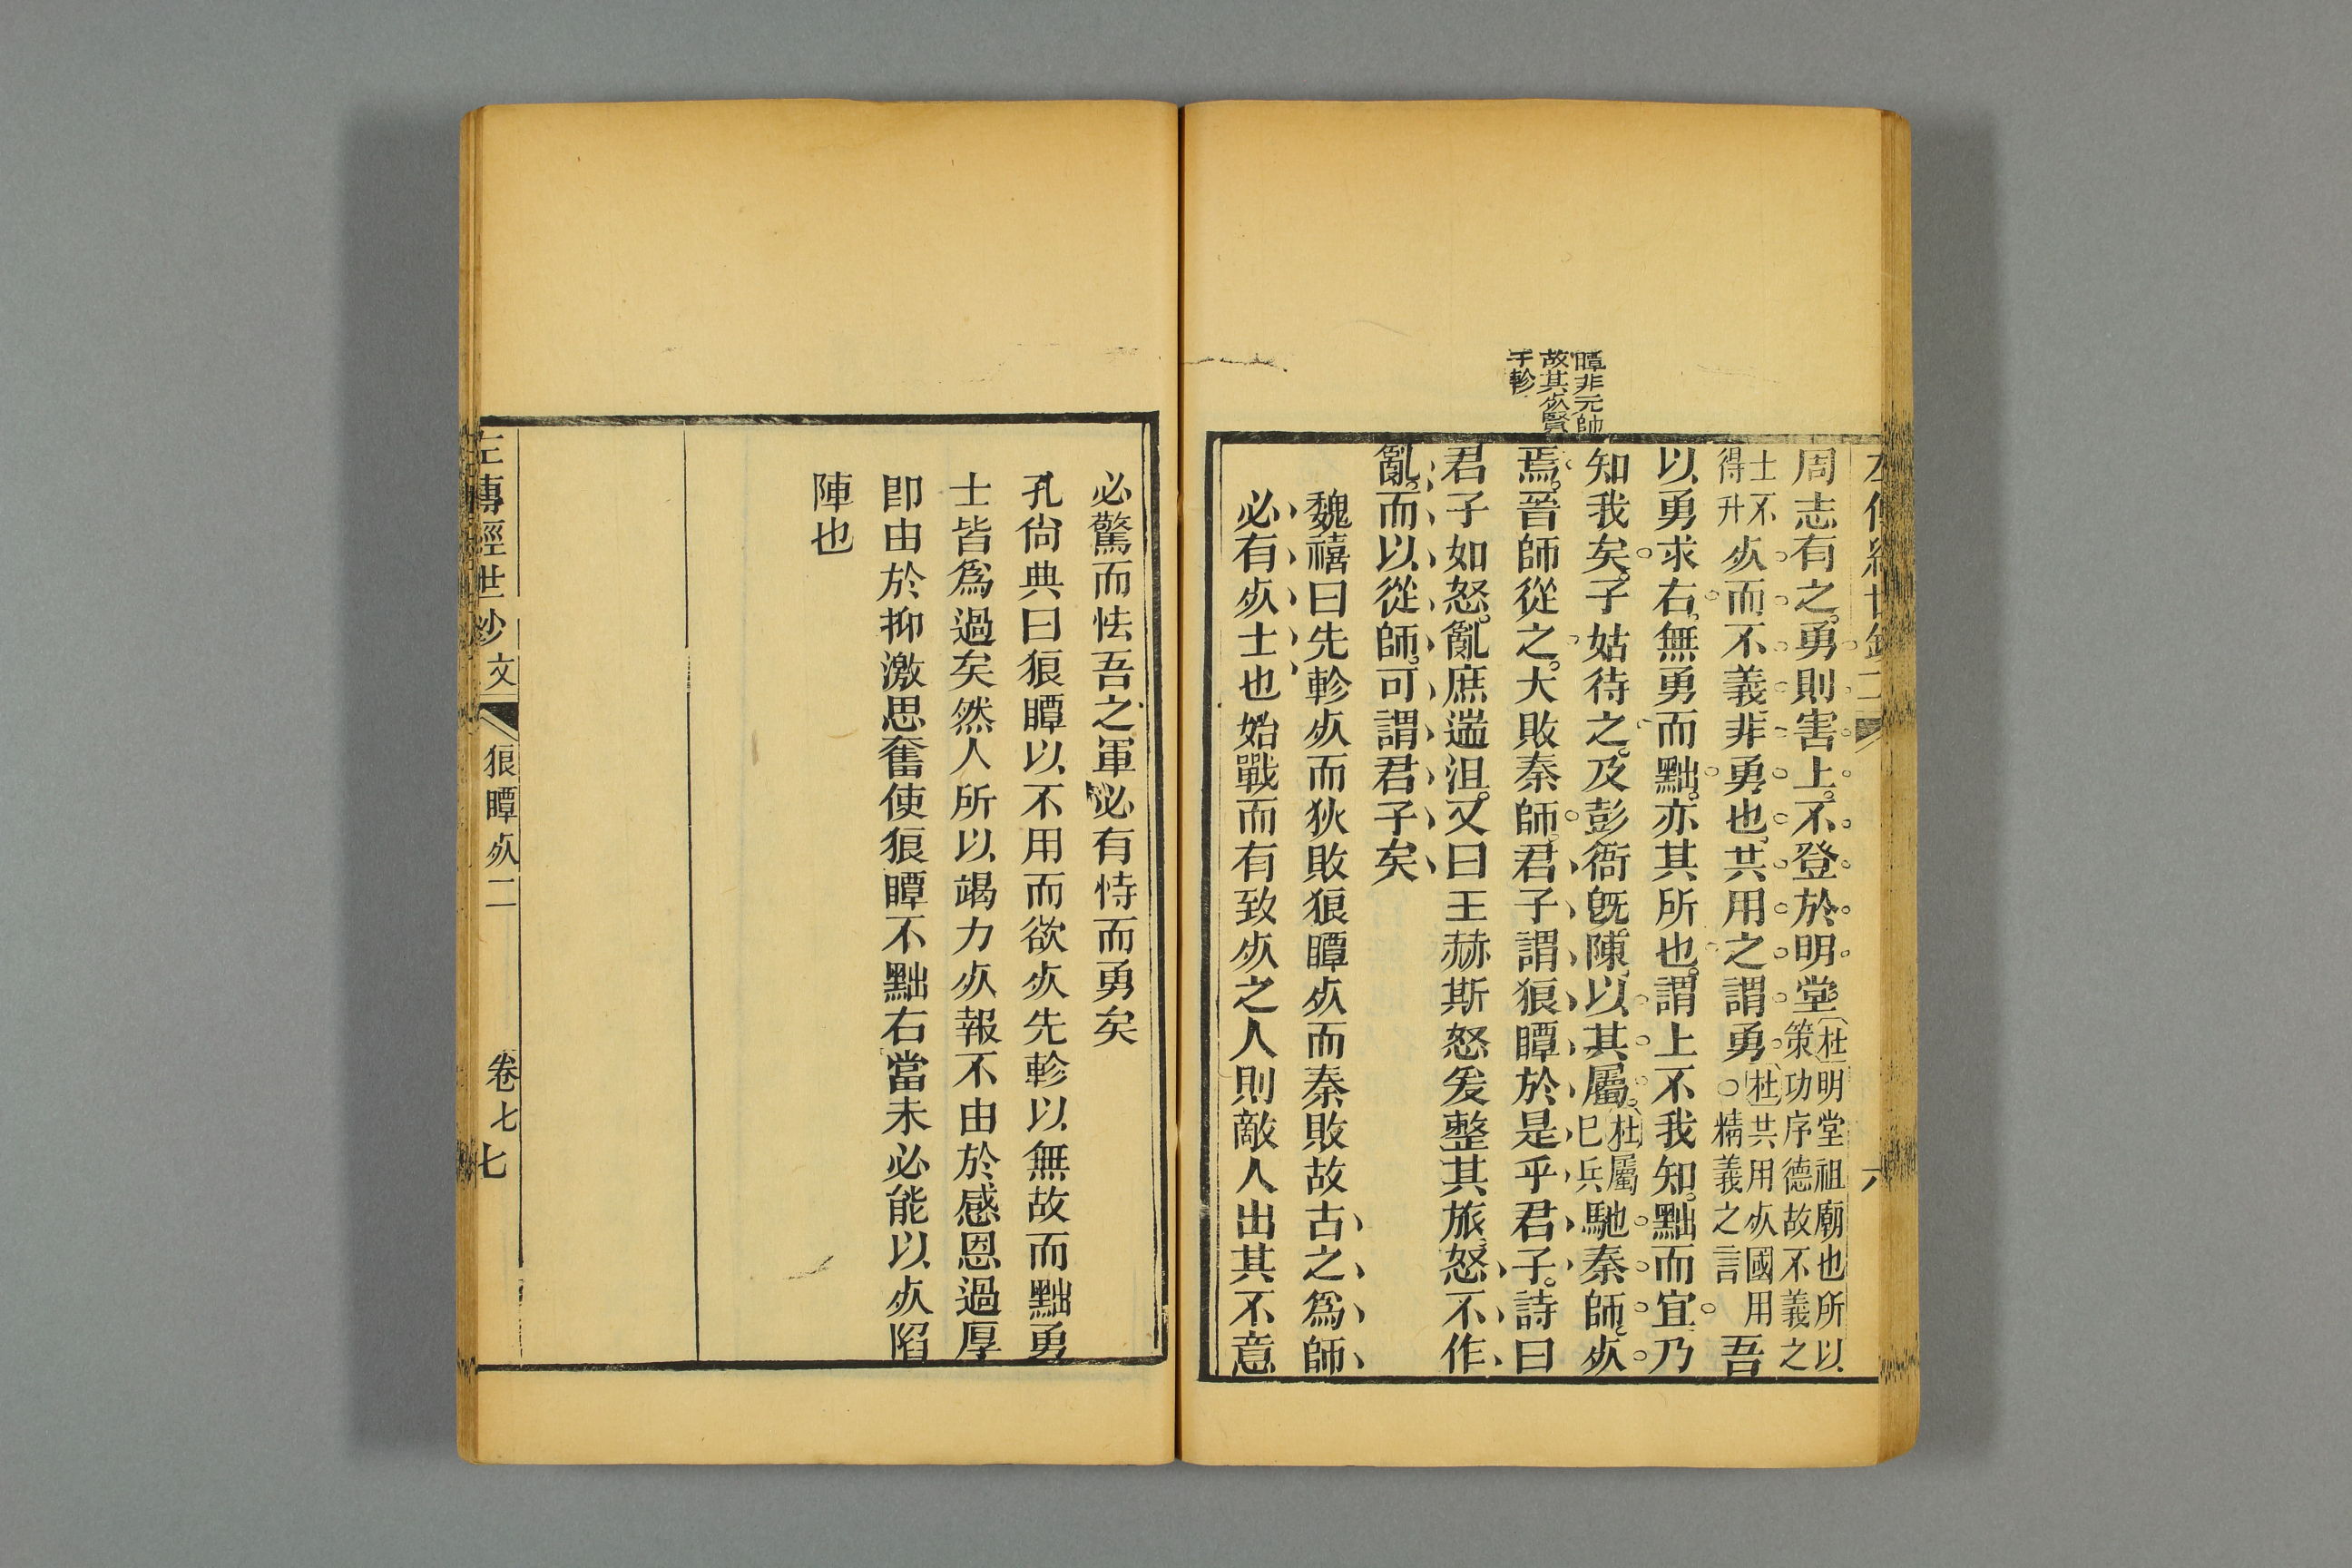 瞫非元帥
故其㱙賢
于軫
周志有之勇則害上不登於明堂杜明堂祖廟也所以
策功序德故不義之
士不
得升㱙而不義非勇也共用之謂勇杜共用㱙國用
○精義之言吾
以勇求右無勇而黜亦其所也謂上不我知黜而宜乃
知我矣子姑待之及彭衙旣陳以其屬杜屬
巳兵馳秦師㱙
焉晉師從之大敗秦師君子謂狼瞫於是乎君子詩曰
君子如怒亂庶遄沮又曰王赫斯怒爰整其旅怒不作
亂而以從師可謂君子矣
魏禧曰先軫㱙而狄敗狼瞫㱙而秦敗故古之爲師
必有㱙士也始戰而有致㱙之人則敵人出其不意
必驚而怯吾之軍必有恃而勇矣
孔尙典曰狼瞫以不用而欲㱙先軫以無故而黜勇
士皆爲過矣然人所以竭力㱙報不由於感恩過厚
卽由於抑激思奮使狼瞫不黜右當未必能以㱙陷
陣也
左傳經世鈔 文 狼瞫㱙二 卷七 七